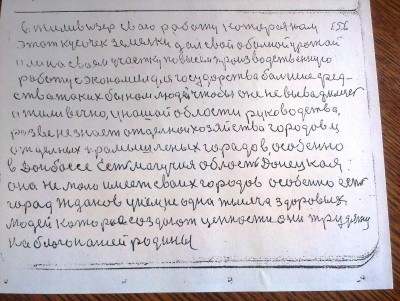 6. тилив изер сваю работу которая там 156
этот кусочек земелки дал свой обилной урожай
и мна своем участку повысем производственную
работу сэкономила, государства балшие сред-
ства таких бы ном людей чтобы оне не вивадилис
и тим вечно, унашай области руководства,
разве не знает отделной хозяйства городов и
и т целних промышленых городов, особенно
в Донбассе. Есть магучия область Донецкая:
она не мало имеет своих городов особенно есть
горад Жданов унеи не одна тисича здоровых
людей котораё создают ценности они трудятц
на благо нашей родины